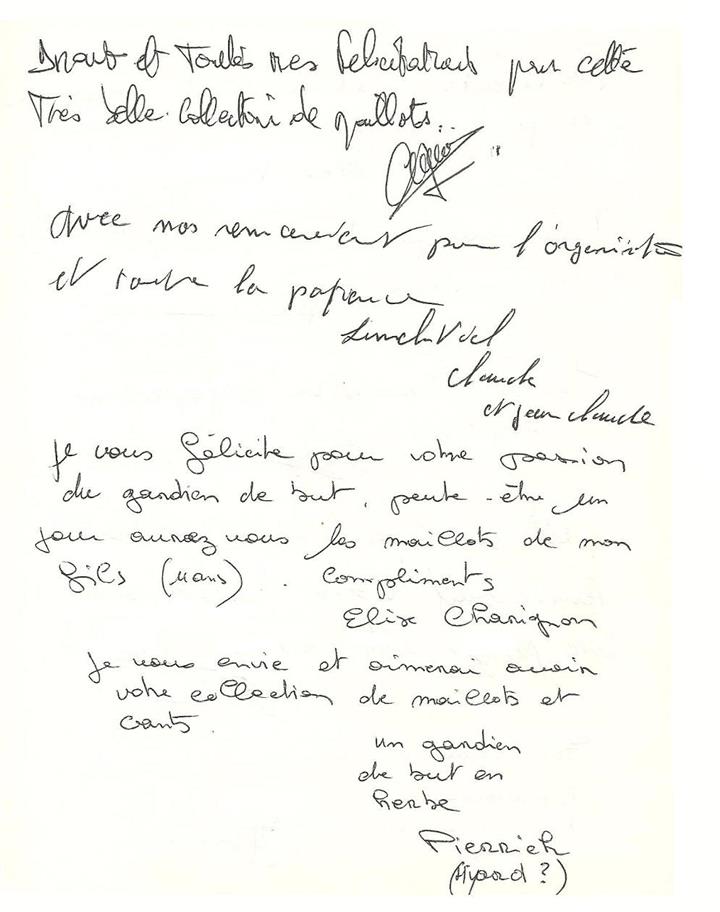 Bravo et Toutes mes Félicitations pour cette
Très belle Collection de maillots..
Avec nos remerciements pour l'organisation
et toute la patience
Claude
et jean claude
Je vous félicite pour votre passion
du gardien de but, peute-être un
jour aurez vous les maillots de mon
fils (4 ans). Compliments
Elise Charignon
Je vous envie et aimerai avoir
votre collection de maillots et
Gants.
un gardien
de but en
herbe
Pierrick